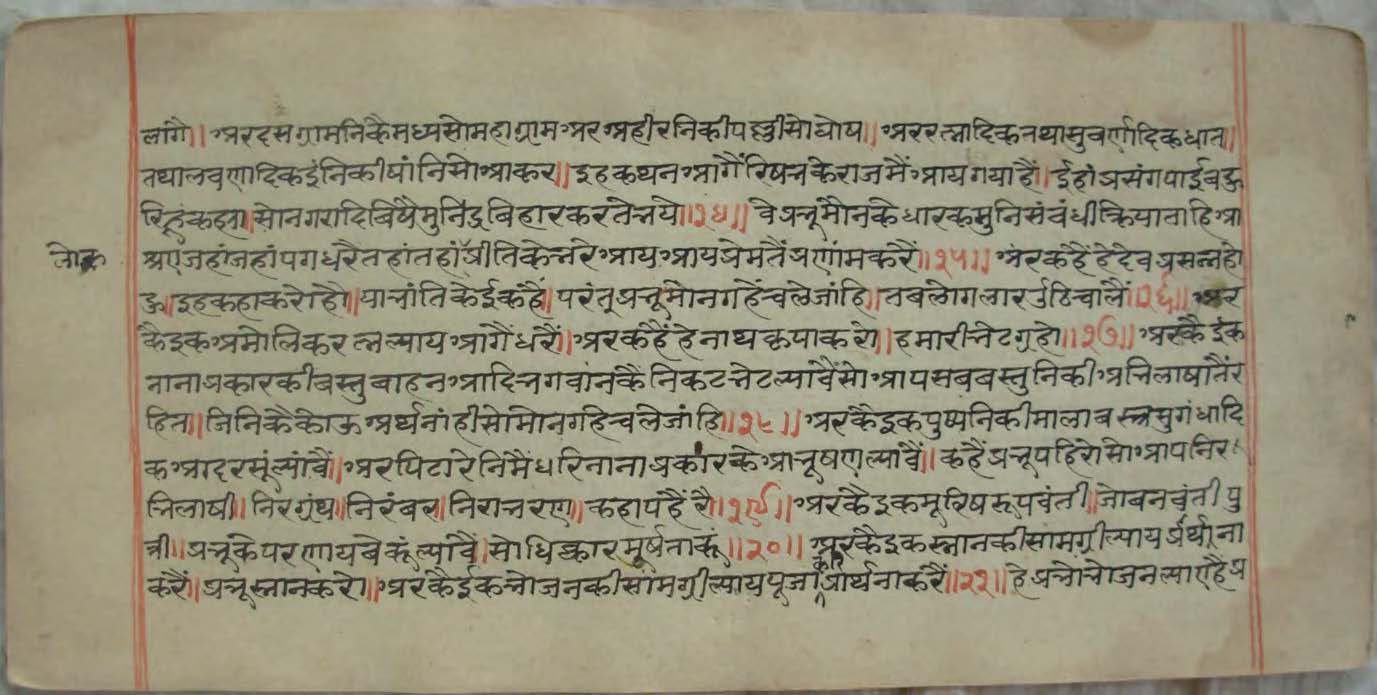 लागै॥ अर दस ग्रामनिकै मध्य सो महाग्राम अर अहीरनिकी पल्ली सो घोष॥ अर रत्नादिक तथा सुवर्णादिक धात॥
तथा लवणादिक इंनिकी षांनि सो आकर॥ इह कथन आगैं रिषभके राजमैं आय गया है॥ ईहां प्रसंग पाई बहु
रि हूं कह्या॥ सो नगरादि बिषै मुनिंद्र बिहार करते भये॥१४॥ वे प्रभू मौनके धारक मुनि संबंधी क्रिया ताहि प्रा
प्त भए जहां जहां पग धरै तहां तहां प्रीतिके भरे आय आय प्रेमतैं प्रणांम करैं॥१५॥ अर कहैं हे देव प्रसन्न हो
लोक
हु॥ इह कहा करो हौ॥ या भांति केईक कहैं॥ परंतु प्रभू मौन गहैं चले जांहि॥ तब लोग लार उठि चालैं॥१६॥ अर
कैइक अमोलिक रत्न ल्याय आगैं धरैं॥ अर कहैं हे नाथ कृपा करो॥ हमारी भेट गृहो॥१७॥ अर कैईक
नाना प्रकारकी बस्तु बाहन आदि भगवांनकैं निकट भेट ल्यांवैं सो आप सब बस्तुनिकी अभिलाषातैं र
हित॥ जिनिकै कोऊ अर्थ नांही सो मौन गहि चले जांहि॥१८॥ अर कैइक पुष्पनिकी माला बस्त्र सुगंधादि
क आदरसूं ल्यांवैं॥ अर पिटारेनिमैं धरि नाना प्रकारके आभूषण ल्यावैं॥ कहैं प्रभू पहिरो सो आप निर
भिलाषी॥ निरग्रंथ॥ निरंबर॥ निराभरण॥ कहा पहैंरै॥१९॥ अर कैइक मूरिष रूपवंती॥ जोबनवंती पु
त्री॥ प्रभूके परणायवेकूं ल्यांवैं॥ सो धिक्कार मूर्षताकूं॥२०॥ अर कैइक स्नानकी सामग्री ल्याय प्रार्थना
करैं॥ प्रभू स्नान करो॥ अर कैईक भोजनकी सांमग्री ल्याय पूजा करि प्रार्थना करैं॥२१॥ हे प्रभो भोजन ल्याए हैं प्र